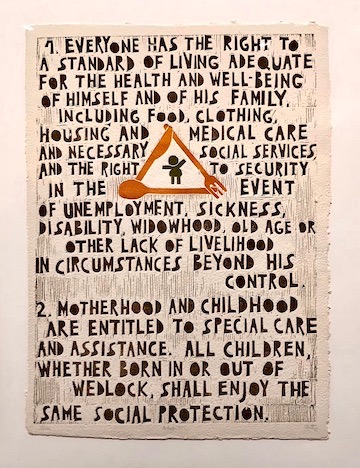 1. EVERYONE HAS THE RIGHT TO
A STANDARD OF LIVING ADEQUATE
FOR THE HEALTH AND WELL-BEING
OF HIMSELF AND OF HIS FAMILY,
INCLUDING FOOD, CLOTHING,
HOUSING AND MEDICAL CARE
AND NECESSARY SOCIAL SERVICES
AND THE RIGHT TO SECURITY
IN THE EVENT
OF UNEMPLOYMENT, SICKNESS,
DISABILITY, WIDOWHOOD, OLD AGE OR
OTHER LACK OF LIVELIHOOD
IN CIRCUMSTANCES BEYOND HIS
CONTROL.
2. MOTHERHOOD AND CHILDHOOD
ARE ENTITLED TO SPECIAL CARE
AND ASSISTANCE. ALL CHILDREN,
WHETHER BORN IN OR OUT OF
WEDLOCK, SHALL ENJOY THE
SAME SOCIAL PROTECTION.